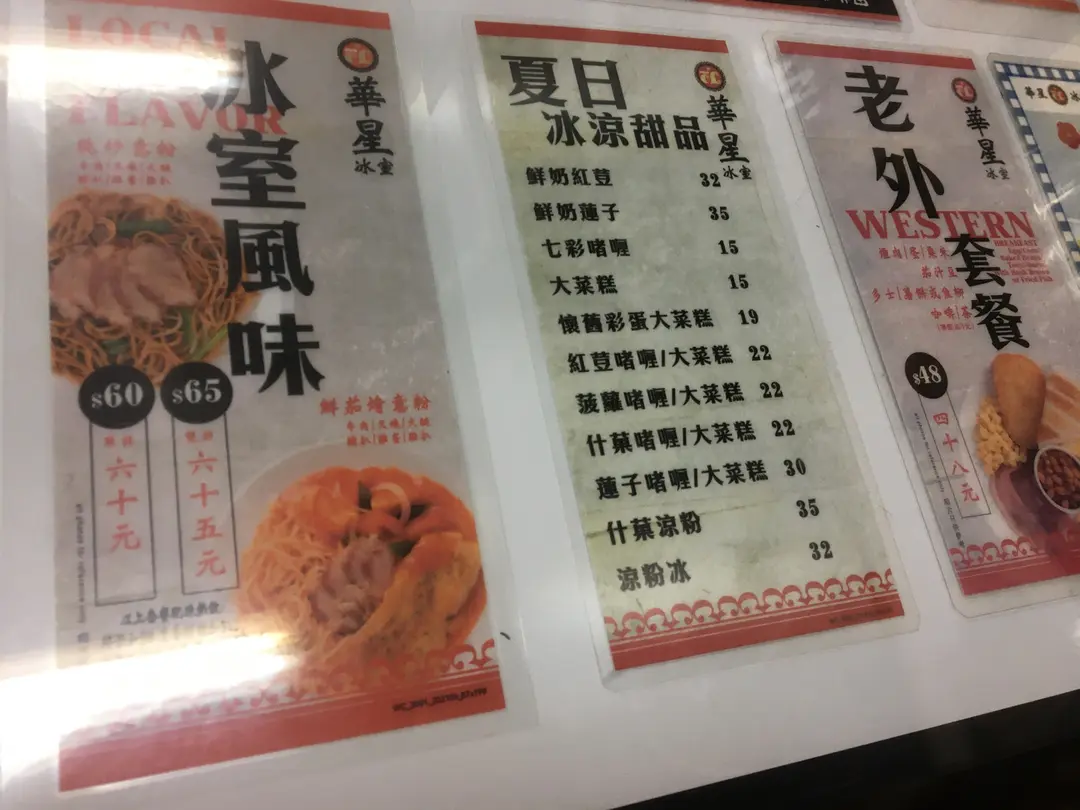 LOCAL
FLAVOR
冰室風味
華星
冰室
炒意粉
$60
六十元
$65
六十五元
鮮茄燴意粉
牛肉|叉燒|火腿
豬扒|雞蛋|雞扒
夏日
冰涼甜品
華星
冰室
鮮奶紅荳 32
鮮奶蓮子 35
七彩啫喱 15
大菜糕 15
懷舊彩蛋大菜糕 19
紅荳啫喱/大菜糕 22
菠蘿啫喱/大菜糕 22
什菓啫喱/大菜糕 22
蓮子啫喱/大菜糕 30
什菓涼粉 35
涼粉冰 32
老外
套餐
華星
冰室
WESTERN
BREAKFAST
茄汁豆
咖啡|茶
$48
四十八元
華星
冰